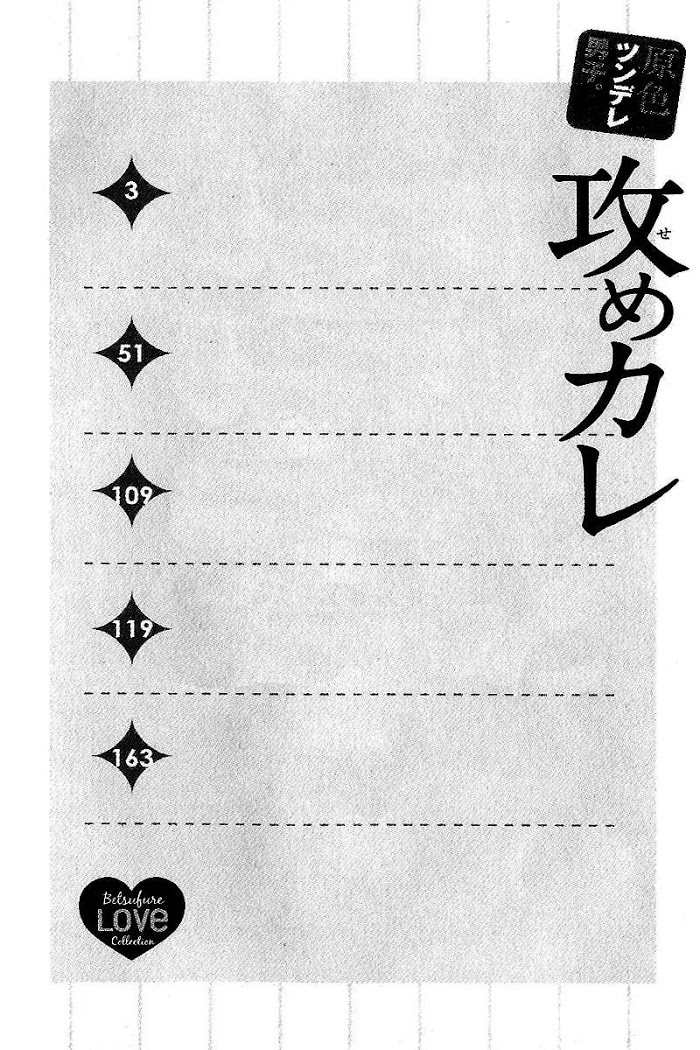 原色
ツンデレ
男子。
攻めカレ
せ
3
51
109
119
163
Betsufure
LOVE
Collection